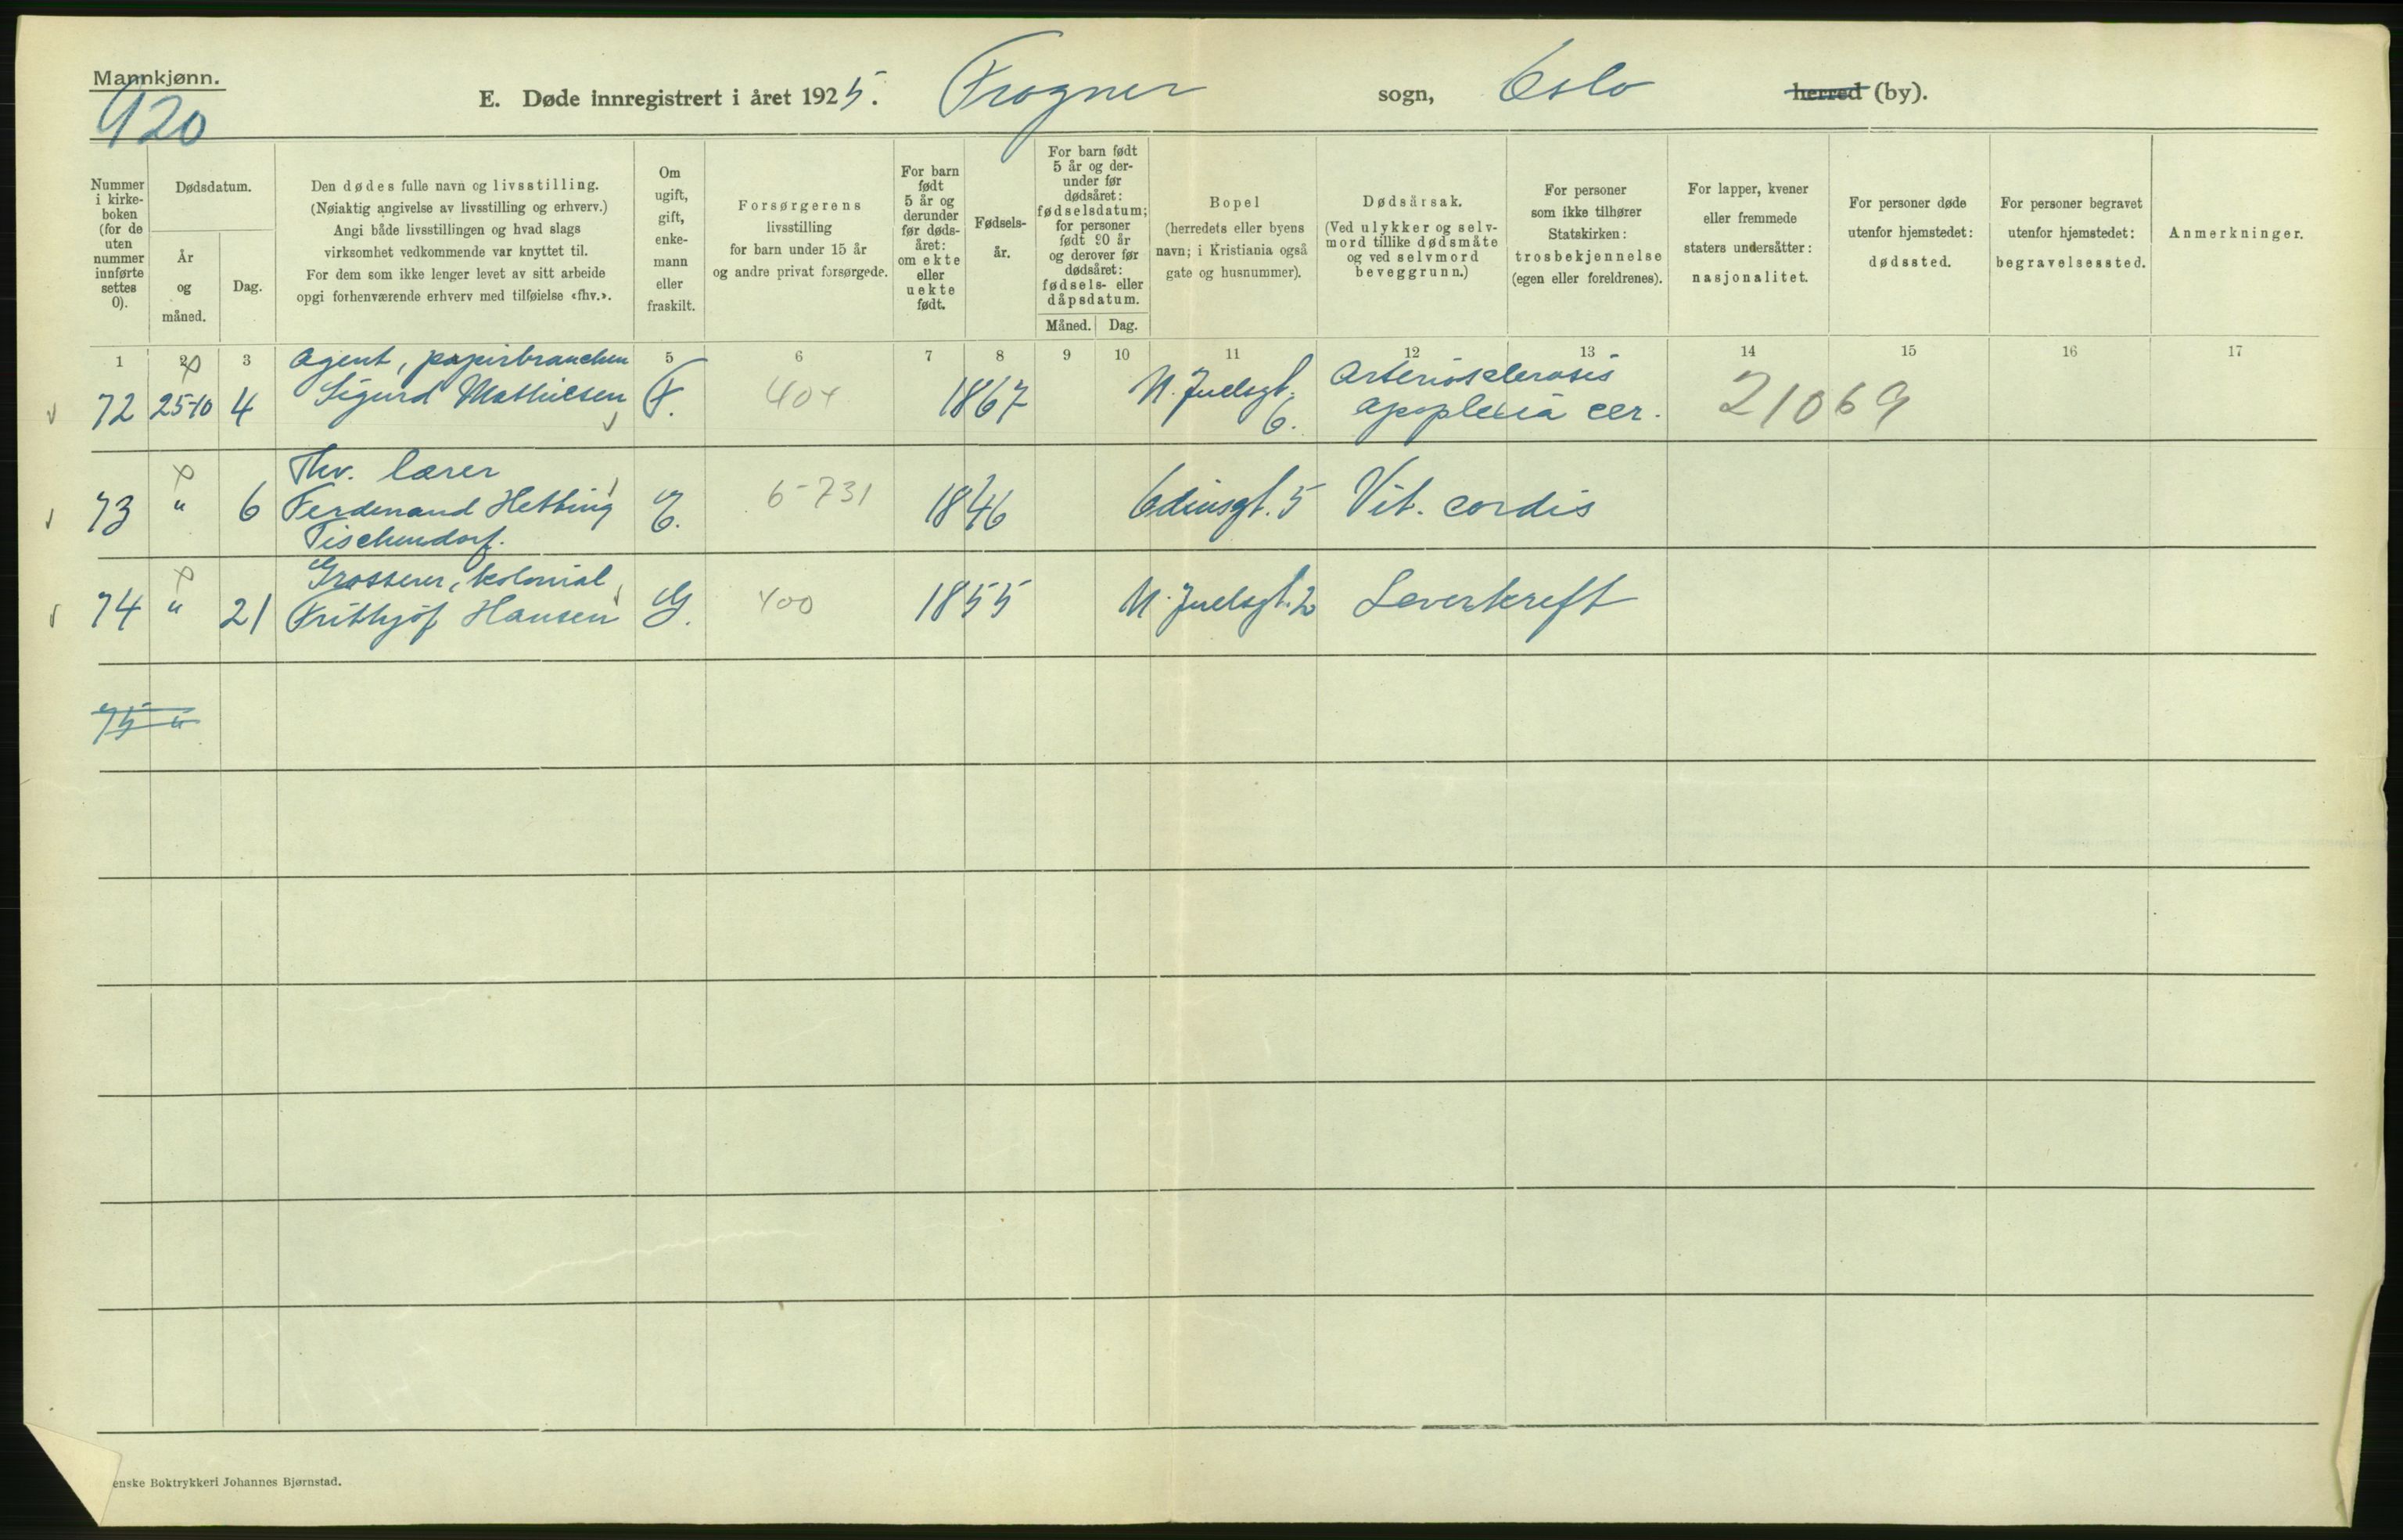 Mannkjønn.
920
E. Døde innregistrert i året 1925. Frogner sogn, Oslo herred (by).
Nummer i kirke- boken (for de uten nummer innførte settes 0).
Dødsdatum.
År og måned.
Dag.
Den dødes fulle navn og livsstilling.
(Nøiaktig angivelse av livsstilling og erhverv.)
Angi både livsstillingen og hvad slags
virksomhet vedkommende var knyttet til.
For dem som ikke lenger levet av sitt arbeide
opgi forhenværende erhverv med tilføielse «fhv.».
Om ugift, gift, enke- mann eller fraskilt.
Forsørgerens
livsstilling
for barn under 15 år
og andre privat forsørgede.
For barn født 5 år og derunder før døds- året: om ekte eller uekte født.
Fødsels- år.
For barn født 5 år og der- under før dødsåret: fødselsdatum; for personer født 90 år og derover før dødsåret: fødsels- eller dåpsdatum.
Måned. Dag.
Bopel
(herredets eller byens
navn; i Kristiania også
gate og husnummer).
Dødsårsak.
(Ved ulykker og selv-
mord tillike dødsmåte
og ved selvmord
beveggrunn.)
For personer
som ikke tilhører
Statskirken:
trosbekjennelse
(egen eller foreldrenes).
For lapper, kvener
eller fremmede
staters undersåtter:
nasjonalitet.
For personer døde
utenfor hjemstedet:
dødssted.
For personer begravet
utenfor hjemstedet:
begravelsessted.
Anmerkninger.
1 2 3 5 6 7 8 9 10 11 12 13 14 15 16 17
Agent, papirbranchen
72 25-10 4 Sigurd Mathiesen F. 404 1867 N. Juelsgt. 6. Arteriosklerosis
apoplexia cer. 21069
Fhv. lærer
73 " 6 Ferdinand Hetting E. 6-731 1846 Odinsgt. 5 Vit. cordis
Tischendorf.
Grosserer, kolonial
74 " 21 Frithjof Hansen G. 400 1855 N. Juelsgt. 2 Leverkreft
75 "
enske Boktrykkeri Johannes Bjørnstad.